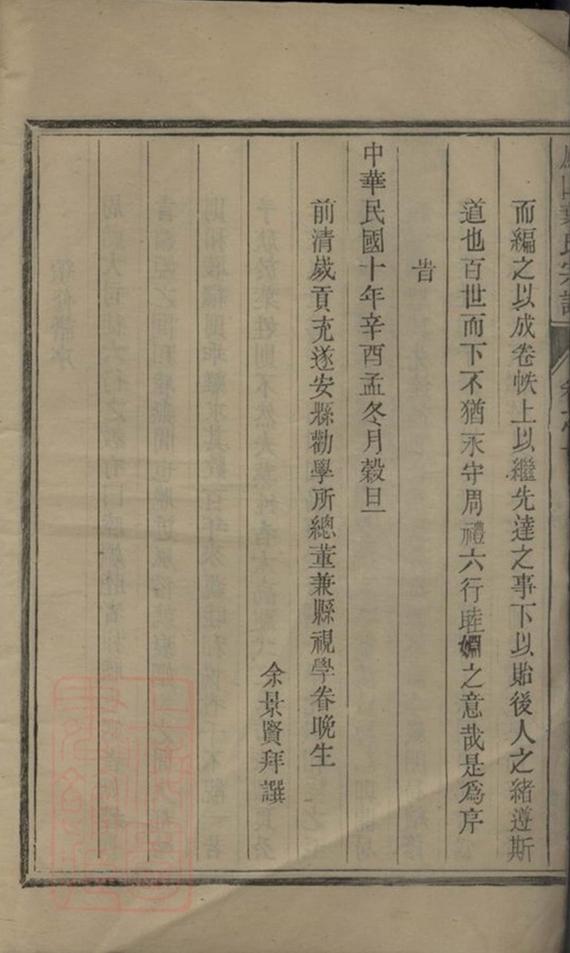 而編之以成卷帙上以繼先達之事下以貽後人之緒遵斯
道也百世而下不猶永守周禮六行睦婣之意哉是爲序
旹
中華民國十年辛酉孟冬月穀旦
前清歲貢充遂安縣勸學所總董兼縣視學眷晚生
余景賢拜譔